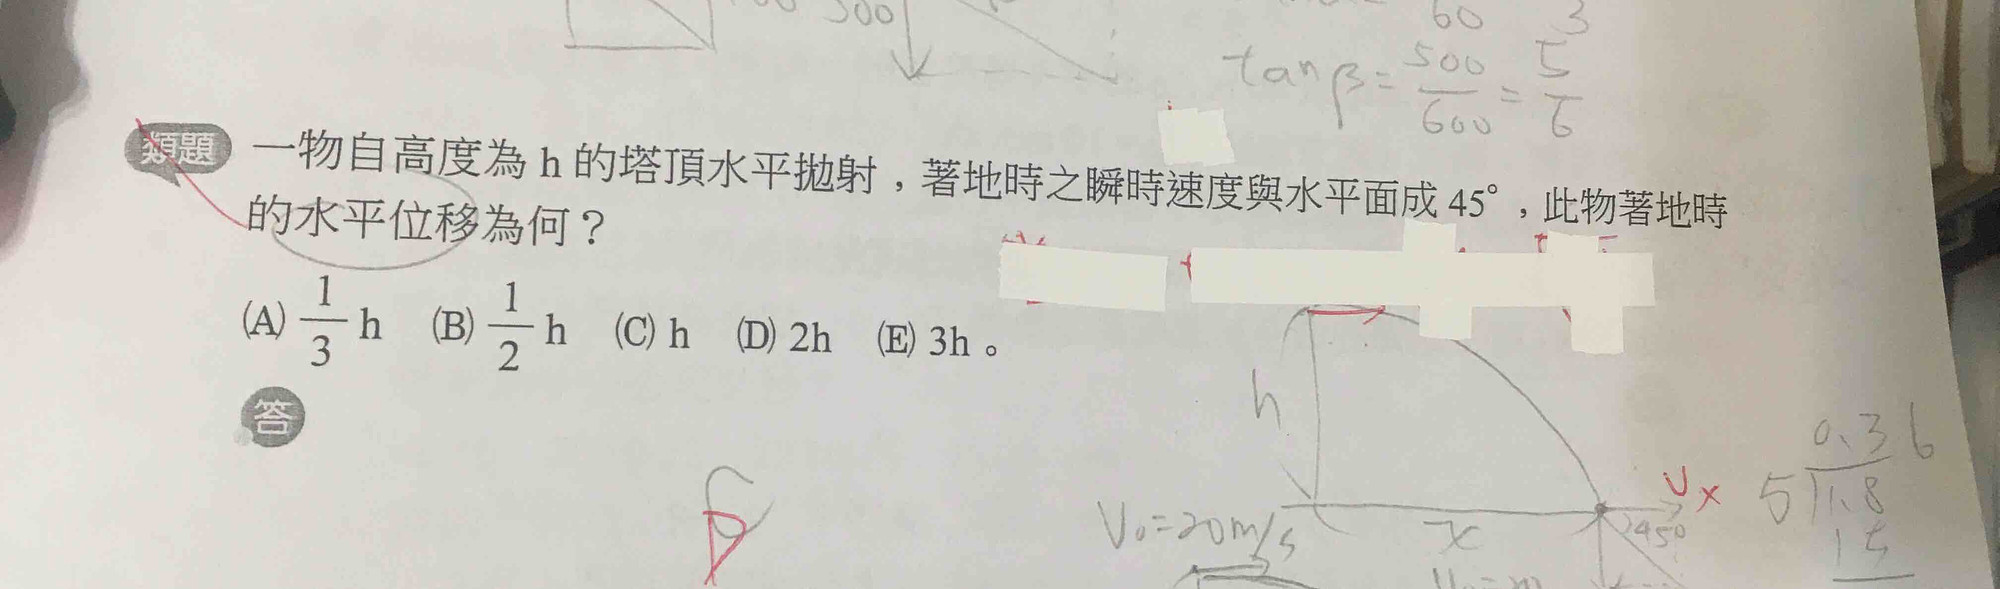 500
60 3
tan β = 500/600 = 5/6
類題 一物自高度為 h 的塔頂水平拋射，著地時之瞬時速度與水平面成 45°，此物著地時
的水平位移為何？
(A) 1/3 h (B) 1/2 h (C) h (D) 2h (E) 3h。
答
h
V₀=20m/s
x
45°
υx
0.36
5)1.8
15
D